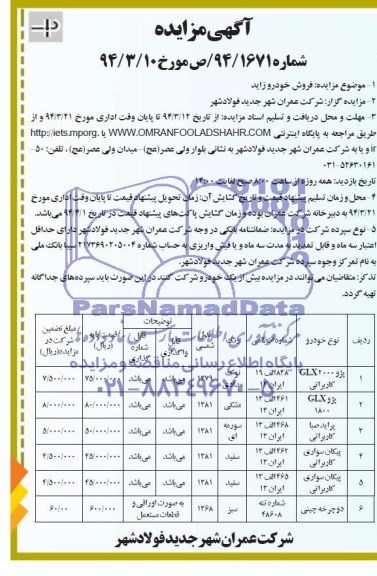 آگهی مزایده
شماره ۹۴/۱۶۷۱/ص مورخ ۹۴/۳/۱۰
۱- موضوع مزایده: فروش خودرو زاید
۲- مزایده گزار: شرکت عمران شهر جدید فولادشهر
۳- مهلت و محل دریافت و تسلیم اسناد مزایده: از تاریخ ۹۴/۳/۱۲ تا پایان وقت اداری مورخ ۹۴/۳/۲۱ و از
طریق مراجعه به پایگاه اینترنتی WWW.OMRANFOOLADSHAHR.COM یا http://iets.mporg.
ir و یا به شرکت عمران شهر جدید فولادشهر به نشانی بلوار ولی عصر(عج)- میدان ولی عصر(عج)، تلفن: ۵۰-
۰۳۱-۵۲۶۳۰۱۶۱
تاریخ بازدید: همه روزه از ساعت ۸:۰۰ صبح لغایت ۱۴:۰۰
۴- محل و زمان تسلیم پیشنهاد قیمت و تاریخ گشایش آن: زمان تحویل پیشنهاد قیمت تا پایان وقت اداری مورخ
۹۴/۳/۳۱ به دبیرخانه شرکت عمران بوده و زمان گشایش پاکت‌های پیشنهاد قیمت در تاریخ ۹۴/۴/۱ می‌باشد.
۵- نوع سپرده شرکت در مزایده: ضمانتنامه بانکی در وجه شرکت عمران شهر جدید فولادشهر دارای حداقل
اعتبار سه ماه و قابل تمدید به مدت سه ماه و یا فیش واریزی به حساب شماره ۲۱۷۳۶۹۰۲۰۵۰۰۴ سیبا بانک ملی
به نام تمرکز وجوه سپرده شرکت عمران شهر جدید فولادشهر.
تذکر: متقاضیان می‌توانند در مزایده بیش از یک خودرو شرکت کنند در این صورت باید سپرده‌های جداگانه
تهیه گردد.
ParsNamadData
پایگاه اطلاع رسانی مناقصه و مزایده
۰۲۱-۸۸۳۴۹۶۷۰-۵
توضیحات
ردیف نوع خودرو رنگ شمسی قابل واگذاری قابل شماره گذاری قیمت پایه (ریال) مبلغ تضمین شرکت در مزایده(ریال)
۱ پژو GLX۲۰۰۰ کاربراتی ۸۳۸الف۱۹ ایران ۱۳ نوک مدادی می‌باشد می‌باشد ۷/۵۰۰/۰۰۰
۲ پژو GLX ۱۸۰۰ ۴۶۱الف۱۳ ایران ۱۳ مشکی ۱۳۸۱ می‌باشد می‌باشد ۸۰/۰۰۰/۰۰۰ ۸/۰۰۰/۰۰۰
۳ پراید صبا کاربراتی ۴۶۸الف۱۳ ایران ۱۳ سورمه ای ۱۳۸۱ می‌باشد می‌باشد ۵۰/۰۰۰/۰۰۰ ۵/۰۰۰/۰۰۰
۴ پیکان سواری کاربراتی ۴۶۲الف۱۳ ایران ۱۳ سفید ۱۳۸۱ می‌باشد می‌باشد ۴۵/۰۰۰/۰۰۰ ۴/۵۰۰/۰۰۰
۵ پیکان سواری کاربراتی ۴۶۵الف۱۳ ایران ۱۳ سفید ۱۳۸۱ می‌باشد می‌باشد ۴۵/۰۰۰/۰۰۰ ۴/۵۰۰/۰۰۰
۶ دوچرخه چینی شماره تنه ۴۸۶۰۸ سبز ۱۳۶۸ به صورت اوراقی و قطعات مستعمل ۶۰۰/۰۰۰ ۶۰/۰۰۰
شرکت عمران شهر جدید فولادشهر